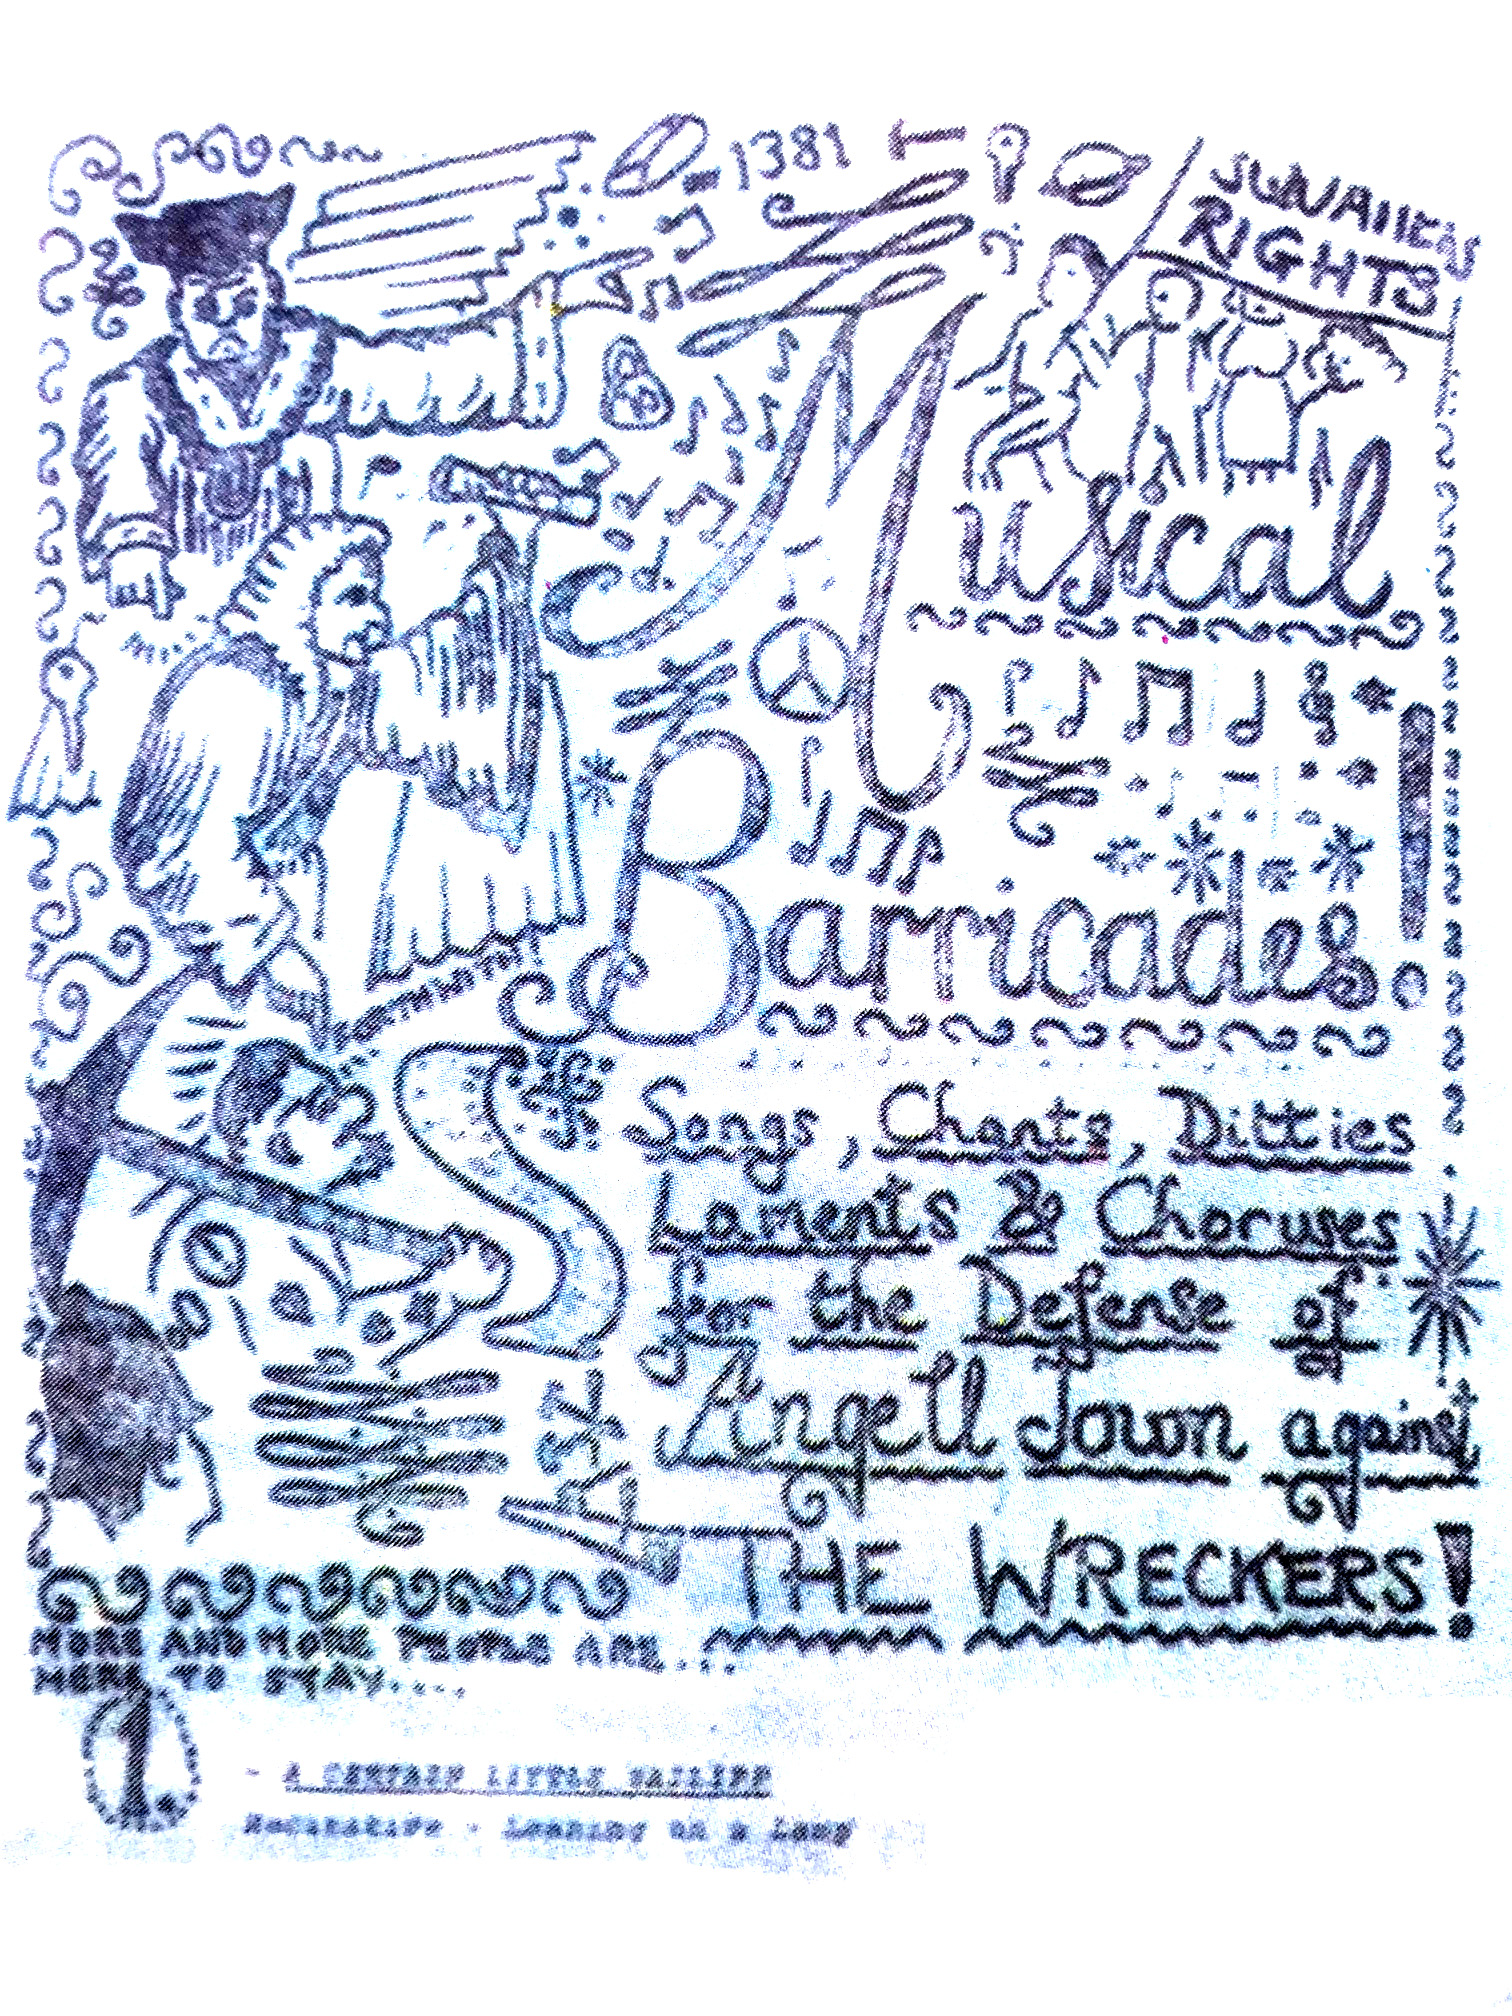 1381
SQUATTERS
RIGHTS
Musical
Barricades!
Songs, Chants, Ditties
Laments & Choruses
for the Defense of
Angell Town against
THE WRECKERS!
MORE AND MORE PEOPLE ARE...
HERE TO STAY....
1.
- A CERTAIN LITTLE BAILIFF
Recitative - Leaning on a Lamp